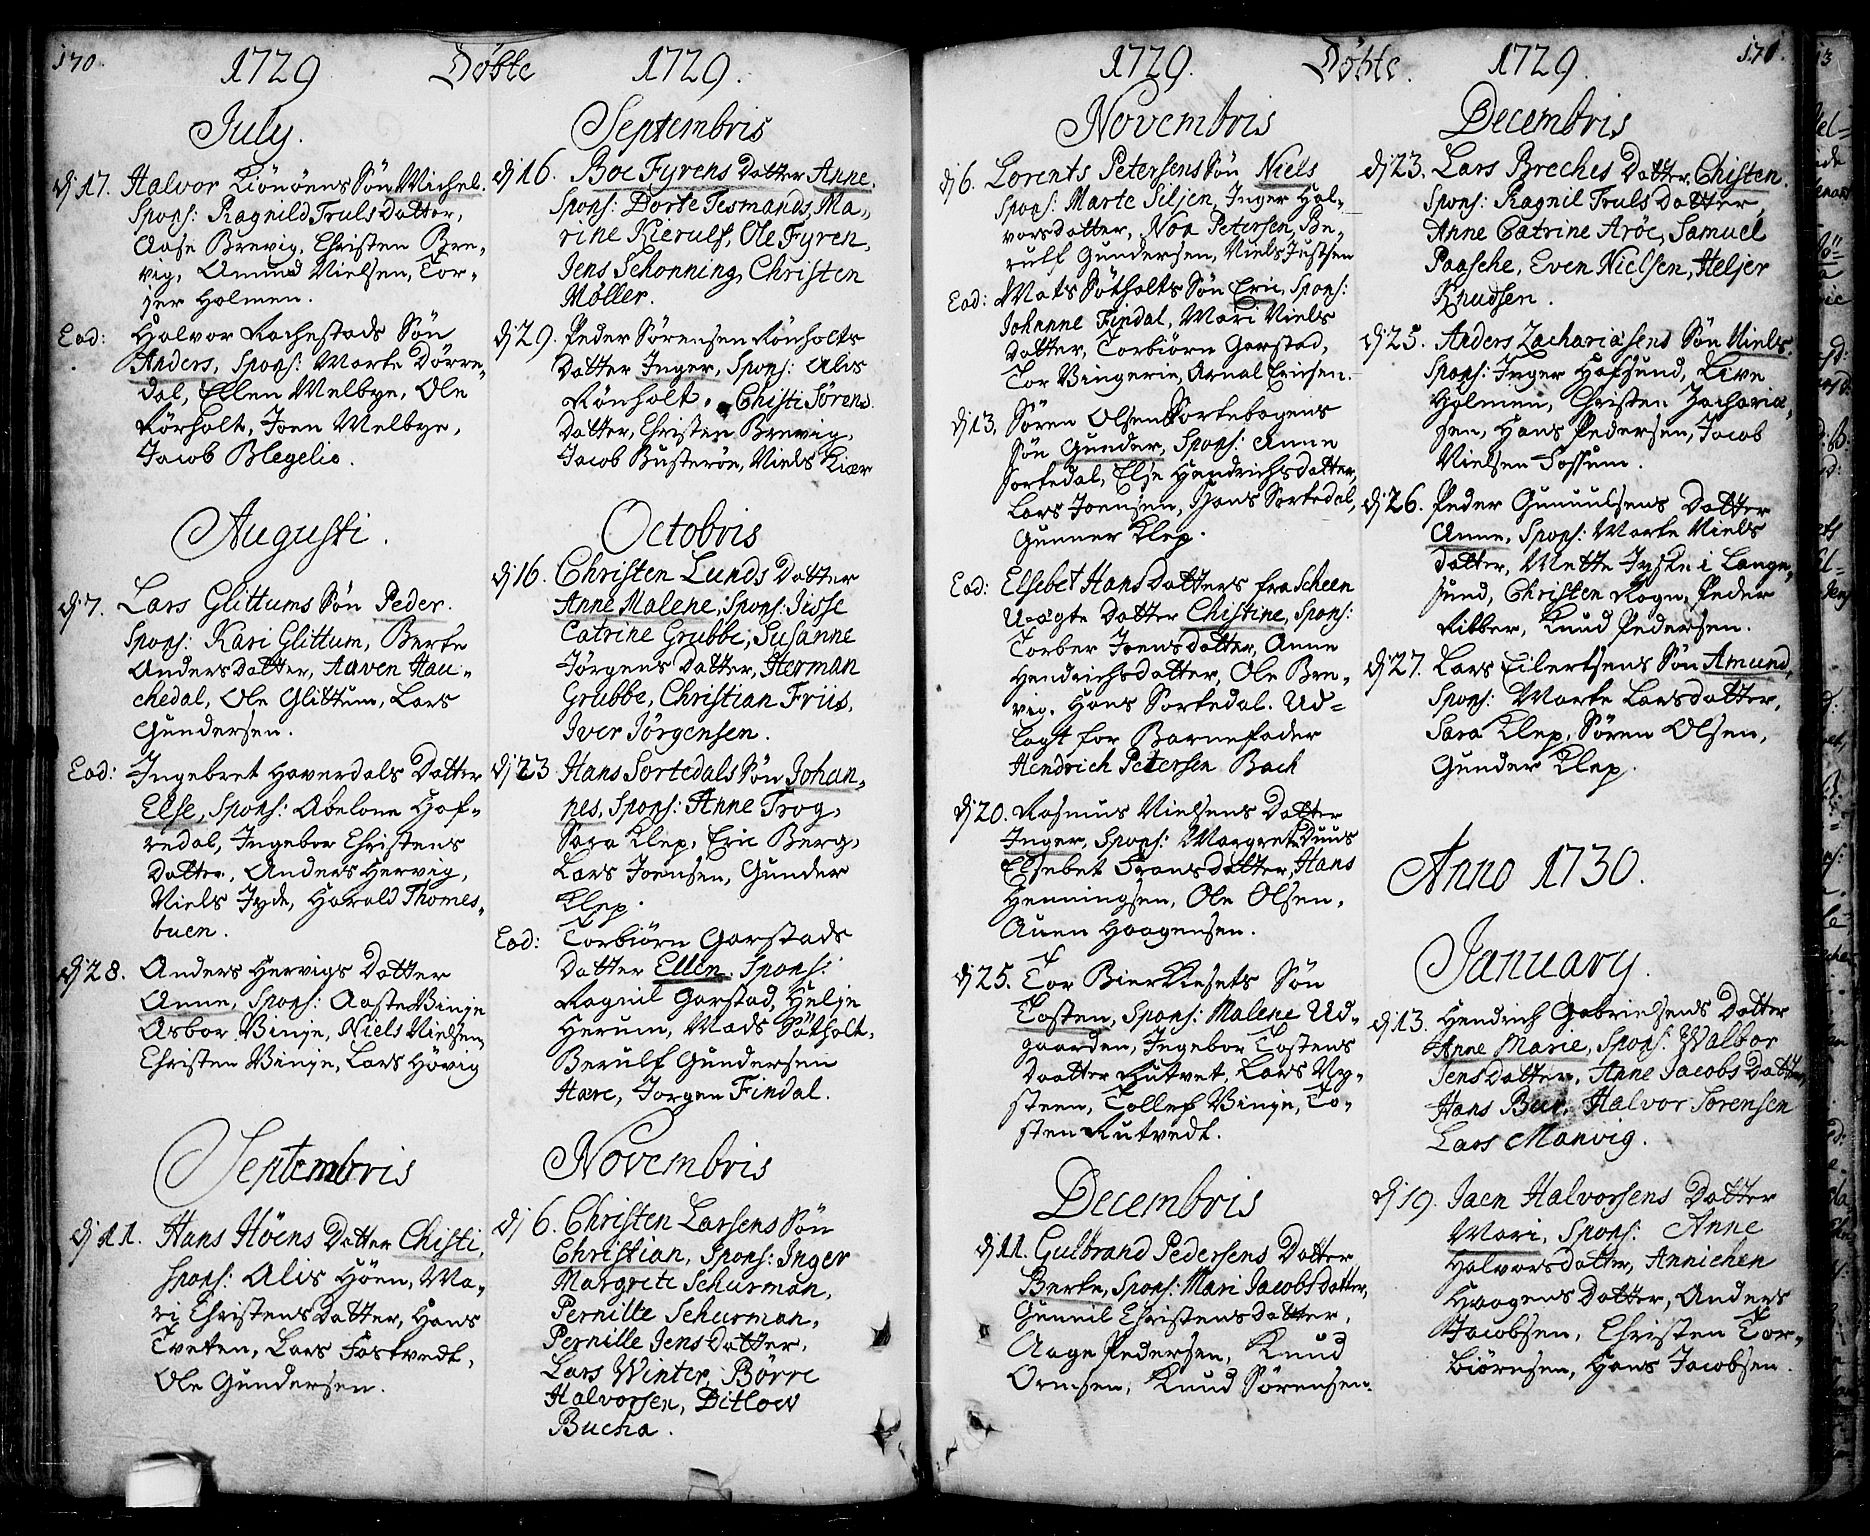 170.
1729 Döbte 1729.
July.
dj 17. Halvor Kiönöens Søn Michel.
Spons: Ragnild Truls Datter,
Aase Brevig, Christen Bre-
vig, Amund Nielsen, Tor-
ger Holmen.
Eod: Halvor Rachestads Søn
Anders, Spons: Marte Dørre-
dal, Ellen Melbye, Ole
Rörholt, Joen Melbye,
Jacob Blegelie.
Augusti.
dj 7. Lars Glittums Søn Peder.
Spons: Kari Glittum, Berte
Anders Datter, Aaven Hau-
chedal, Ole Glittum, Lars
Gundersen.
Eod: Ingebret Haverdals Datter
Else, Spons: Abelone Hof-
redal, Ingebor Christens
Datter, Anders Hervig,
Niels Jyde, Harald Thomes-
buen.
dj 28. Anders Hervigs Datter
Anne, Spons: Aaste Vinje
Asbor Vinje, Niels Nielsen,
Christen Vinje, Lars Hövig
Septembris
dj 11. Hans Höens Datter Chisti,
Spons: Alis Höen, Ma-
ri Christens Datter, Hans
Tveten, Lars Fostvedt,
Ole Gundersen.
Septembris
dj 16. Boe Fyrens Datter Anne.
Spons: Dorte Tesmands, Ma-
rine Kierulf, Ole Fyren,
Jens Schonning, Christen
Møller.
dj 29. Peder Sørensen Rönholts
Datter Inger, Spons: Alis
Rönholt, Chisti Sørens
Datter, Christen Brevig,
Jacob Busterön, Niels Kiær
Octobris
dj 16. Christen Lunds Datter
Anne Malene, Spons: Jesse
Catrine Grubbe, Susanne
Jörgens Datter, Herman
Grubbe, Christian Friis,
Iver Jörgensen.
dj 23 Hans Sortedals Søn Johan-
nes, Spons: Anne Trog,
Sara Klep, Eric Berg,
Lars Joensen, Gunder
Klep.
Eod: Torbiörn Garstads
Datter Ellen. Spons:
Ragnil Garstad, Helje
Herum, Mads Søtholt,
Berulf Gundersen
Hare, Jorgen Findal.
Novembris
dj 6. Christen Larsens Søn
Christian, Spons: Inger
Margrete Schurman,
Pernille Schurman,
Pernille Jens Datter,
Lars Winter, Börre
Halvorsen, Ditlow
Bucha.
1729. Döbte. 1729. 171.
Novembris
dj 6. Lorents Petersens Søn Niels
Spons: Marte Siljen, Inger Hal-
vorsdatter, Noa Petersen, Be-
rulf Gundersen, Niels Justsen
Eod: Mats Søtholts Søn Eric, Spons:
Johanne Findal, Mari Niels
Datter, Torbiörn Garstad,
Tor Vingerie, Arnal Ericsen.
dj 13. Sören Olsen Sortebogens
Søn Gunder, Spons: Anne
Sortedal, Else Hendrichsdatter,
Lars Joensen, Hans Sortedal,
Gunner Klep.
Eod: Elsebet Hans Datters fra Scheen
Uægte Datter Christine, Spons:
Torber Joensdatter, Anne
Hendrichsdatter, Ole Bre-
vig. Hans Sortedal. Ud-
lagt for Barnefader
Hendrich Petersen Bach
dj 20. Rasmus Nielsens Datter
Inger, Spons: Margrete Duus
Elsebet Fransdatter, Hans
Henningsen, Ole Olsen,
Aven Haagensen.
dj 25. Tor Bierkesets Søn
Tosten, Spons: Malene Ud-
gaarden, Ingebor Tostens
Daatter Rutvet, Lars Ny-
steen, Tollef Vinje, To-
sten Rutvedt.
Decembris
dj 11. Gulbrand Pedersens Datter
Berte, Spons: Mari Jacobs Datter,
Gunnil Christensdatter,
Aage Pedersen, Knud
Ormsen, Knud Sörensen.
Decembris
dj 23. Lars Breches Datter Chisten.
Spons: Ragnil Truls Datter,
Anne Catrine Aröe, Samuel
Paasche, Even Nielsen, Heljer
Knudsen.
dj 25. Anders Zachariasens Søn Niels.
Spons: Inger Hafsund, Live
Holmen, Christen Zacharia-
sen, Hans Pedersen, Jacob
Nielsen Fossum.
dj 26. Peder Gunuulsens Datter
Anne, Spons: Marte Niels
Datter, Mette Jyske i Lange-
sund, Christen Rogn, Peder
Ritber, Knud Pedersen.
dj 27. Lars Eilertsens Søn Amund,
Spons: Marte Larsdatter,
Sara Klep, Søren Olsen,
Gunder Klep.
Anno 1730.
January.
dj 13. Hendrich Gabrielsens Datter
Anne Marie, Spons: Walbor
Jens Datter, Anne Jacobs Datter,
Hans Bur, Halvor Sörensen
Lars Manvig.
dj 19. Jaen Halvorsens Datter
Mari, Spons: Anne
Halvorsdatter, Annichen
Haagens Datter, Anders
Jacobsen, Christen Tor-
biörnsen, Hans Jacobsen.